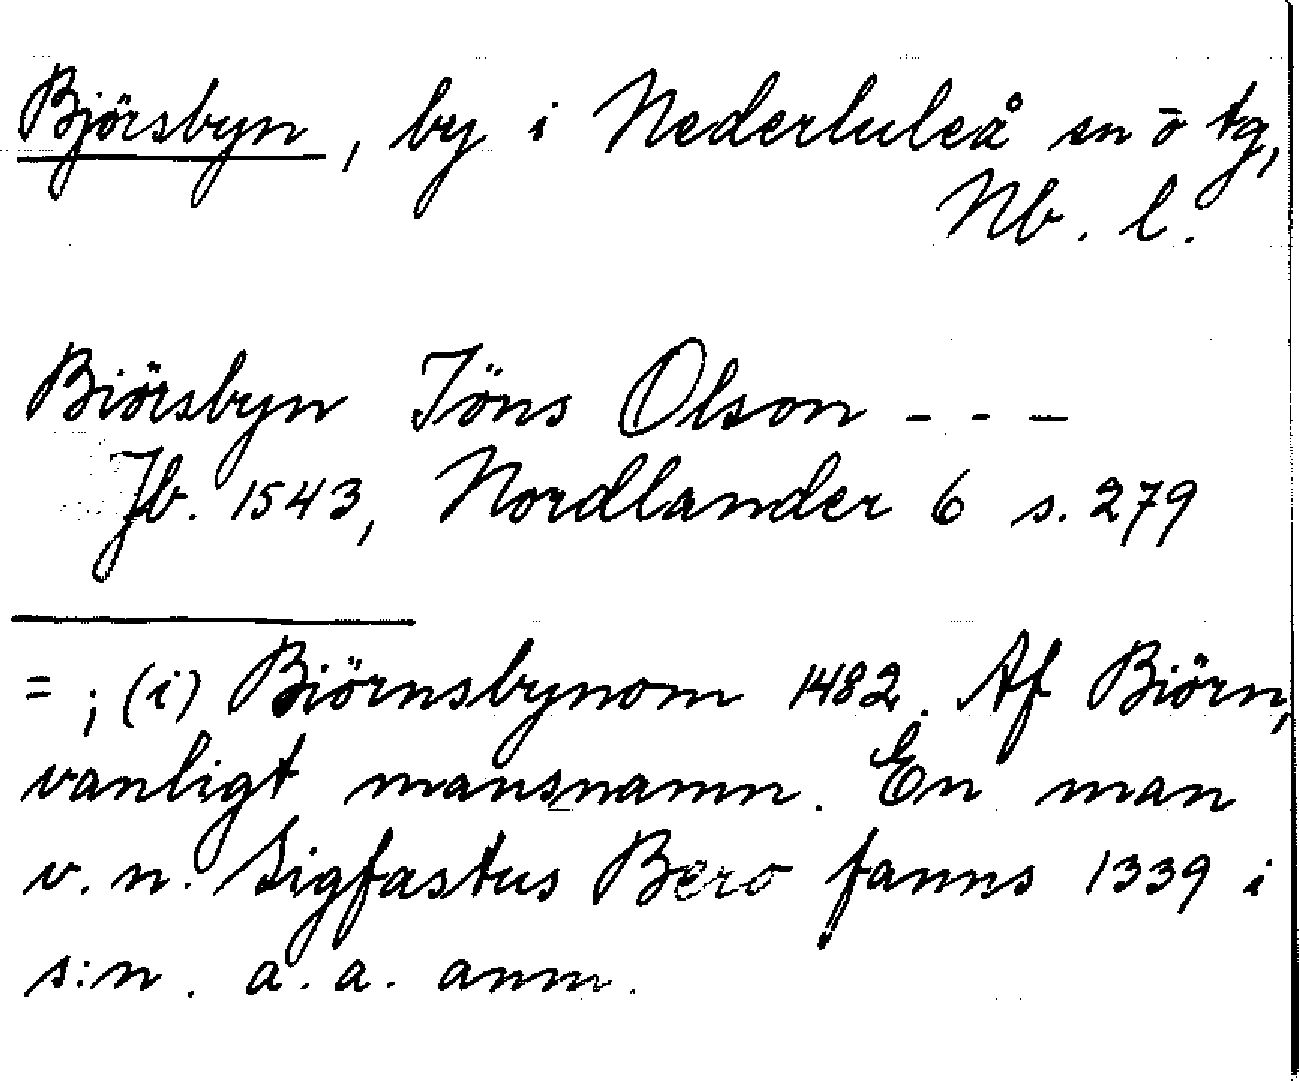 Björsbyn, by i Nederluleå sn ō tg,
Nb. l.
Biörsbyn Jöns Olson - - -
Jb. 1543, Nordlander 6 s. 279
= ; (i) Biörnsbynom 1482. Af Biörn,
vanligt mansnamn. En man
v. n. Sigfastus Bero fanns 1339 i
s:n. a. a. anm.